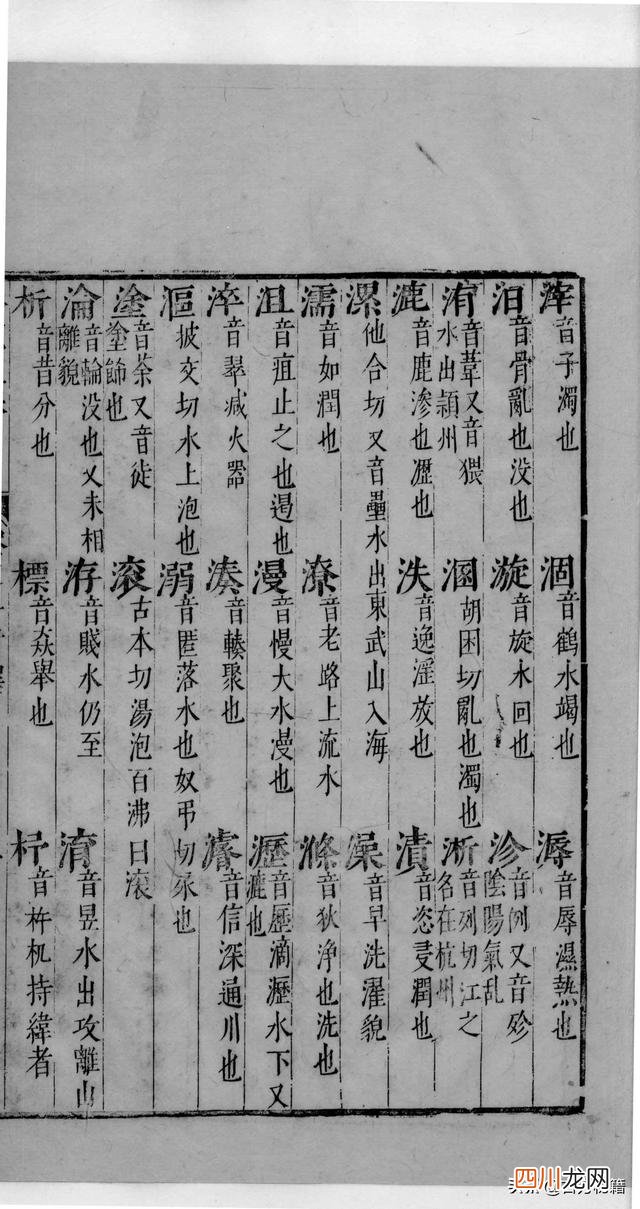 滓 音子濁也 涸 音鶴水竭也 溽 音辱濕熱也
汨 音骨亂也没也 漩 音旋水回也 沴 音例又音殄陰陽氣乱
洧 音葦又音猥水出頴州 溷 胡困切亂也濁也 淅 音列切江之名在杭州
漉 音鹿滲也瀝也 泆 音逸淫放也 漬 音恣叏潤也
漯 他合切又音壘水出東武山入海 澡 音早洗濯貌
濡 音如潤也 潦 音老路上流水 滌 音狄浄也洗也
沮 音疽止之也遏也 漫 音慢大水漫也 瀝 音歷滴瀝水下又漉也
淬 音翠滅火器 湊 音輳聚也 濬 音信深通川也
漚 披交切水上泡也 溺 音匿落水也奴弔切尿也
塗 音茶又音徒塗飾也 滚 古本切湯泡百沸曰滚
淪 音輪没也又未相離貌 洊 音賤水仍至 淯 音昱水出攻離山
析 音昔分也 標 音猋舉也 杼 音杵机持緯者
四川龙网
头条